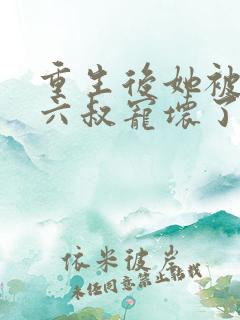 重生后她被
六叔宠坏了
依米彼岸
未经同意禁止转载